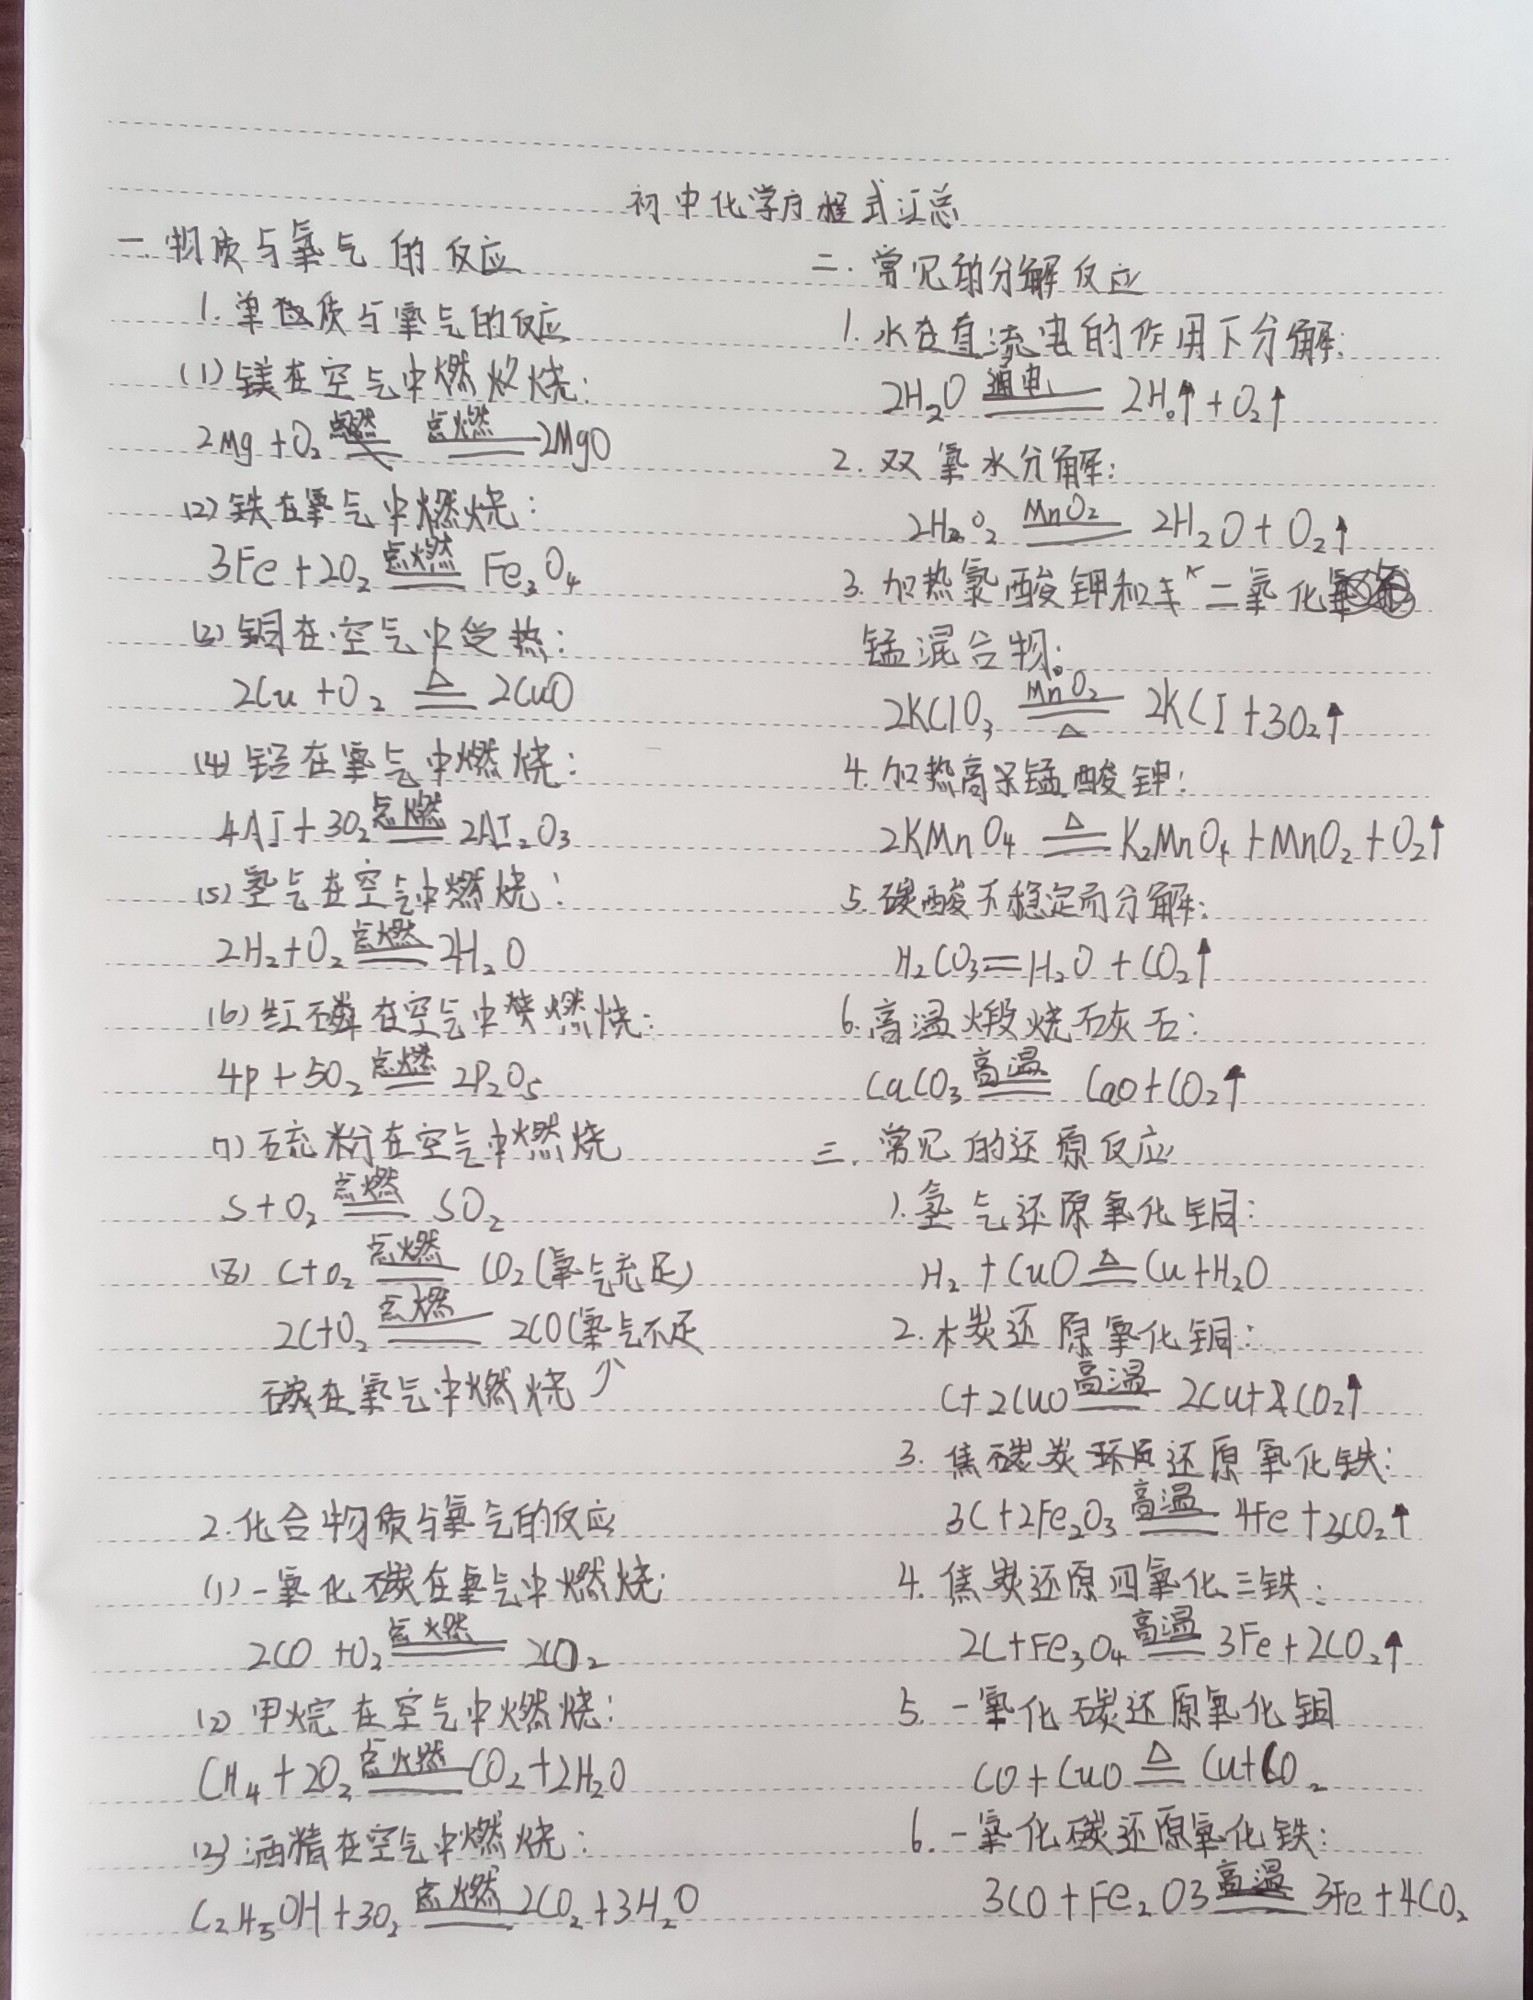 初中化学方程式汇总
一.物质与氧气的反应
1.单质与氧气的反应
(1)镁在空气中燃烧:
2Mg+O₂ 点燃 2MgO
(2)铁在氧气中燃烧:
3Fe+2O₂ 点燃 Fe₃O₄
(3)铜在空气中受热:
2Cu+O₂ △ 2CuO
(4)铝在氧气中燃烧:
4Al+3O₂ 点燃 2Al₂O₃
(5)氢气在空气中燃烧:
2H₂+O₂ 点燃 2H₂O
(6)红磷在空气中燃烧:
4P+5O₂ 点燃 2P₂O₅
(7)硫粉在空气中燃烧
S+O₂ 点燃 SO₂
(8) C+O₂ 点燃 CO₂(氧气充足)
2C+O₂ 点燃 2CO(氧气不足
碳在氧气中燃烧
2.化合物质与氧气的反应
(1)一氧化碳在氧气中燃烧:
2CO+O₂ 点燃 2CO₂
(2)甲烷在空气中燃烧:
CH₄+2O₂ 点燃 CO₂+2H₂O
(3)酒精在空气中燃烧:
C₂H₅OH+3O₂ 点燃 2CO₂+3H₂O
二.常见的分解反应
1.水在直流电的作用下分解:
2H₂O 通电 2H₂↑+O₂↑
2.双氧水分解:
2H₂O₂ MnO₂ 2H₂O+O₂↑
3.加热氯酸钾和二氧化
锰混合物:
2KClO₃ MnO₂ △ 2KCl+3O₂↑
4.加热高锰酸钾:
2KMnO₄ △ K₂MnO₄+MnO₂+O₂↑
5.碳酸不稳定而分解:
H₂CO₃=H₂O+CO₂↑
6.高温煅烧石灰石:
CaCO₃ 高温 CaO+CO₂↑
三.常见的还原反应
1.氢气还原氧化铜:
H₂+CuO △ Cu+H₂O
2.木炭还原氧化铜:
C+2CuO 高温 2Cu+CO₂↑
3.焦炭还原氧化铁:
3C+2Fe₂O₃ 高温 4Fe+3CO₂↑
4.焦炭还原四氧化三铁:
2C+Fe₃O₄ 高温 3Fe+2CO₂↑
5.一氧化碳还原氧化铜
CO+CuO △ Cu+CO₂
6.一氧化碳还原氧化铁:
3CO+Fe₂O3 高温 3Fe+4CO₂